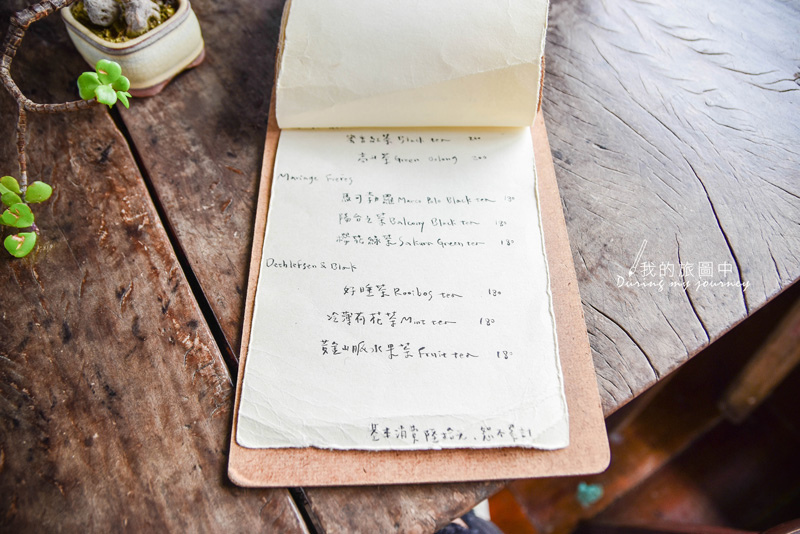 紅茶 Black tea 200
高山茶 Green Oolong 200
Mariage Frères
馬可勃羅 Marco Polo Black tea 180
陽台之茶 Balcony Black tea 180
櫻花綠茶 Sakura Green tea 180
Dethlefsen & Balk
好睡茶 Rooibos tea 180
冷薄荷花茶 Mint tea 180
黃金山脈水果茶 Fruit tea 180
基本消費
我的旅圖中
During my journey